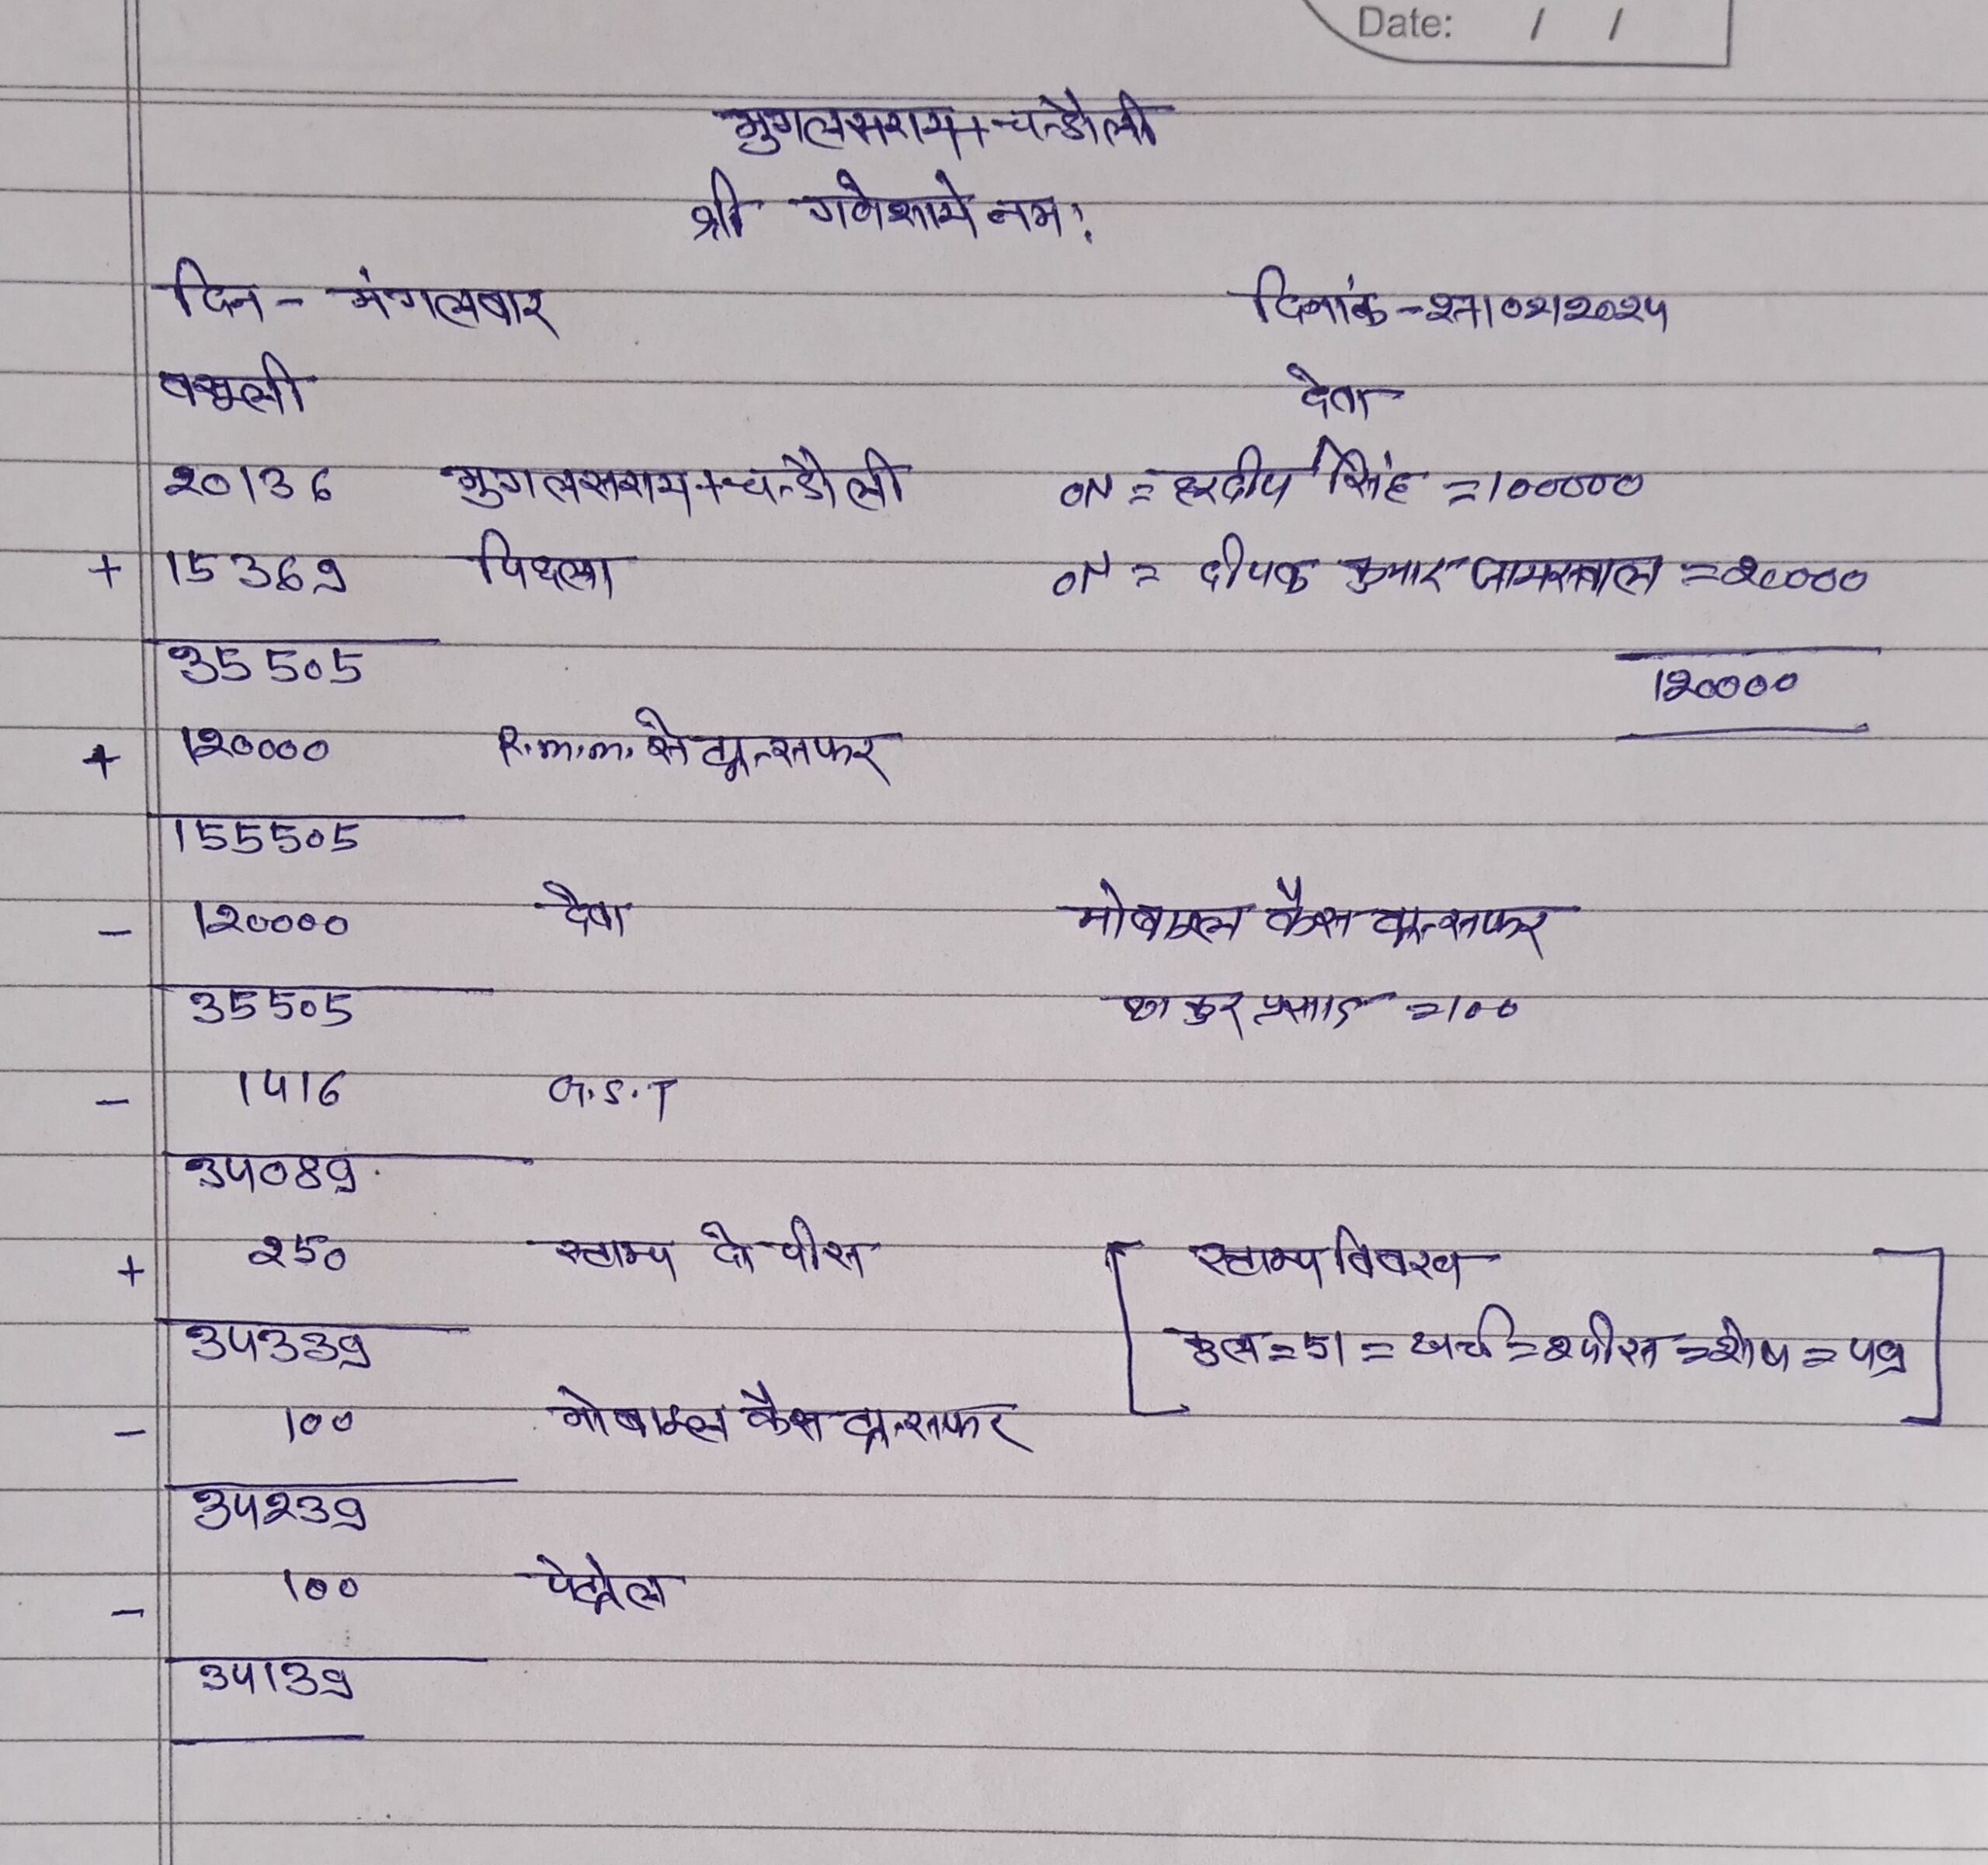 Date: / /
मुगलसराय+चन्दौली
श्री गणेशाये नमः
दिन - मंगलवार दिनांक-27/02/2024
वसूली देवा
20136 मुगलसराय+चन्दौली ON = हरदीप सिंह =100000
+ 15369 पिछला ON = दीपक कुमार जायसवाल =20000
35505 120000
+ 120000 R.m.m. से ट्रान्सफर
155505
- 120000 देवा मोबाइल कैस ट्रान्सफर
35505 ठाकुर प्रसाद =100
- 1416 G.S.T
34089
+ 250 स्टाम्प दो पीस [ स्टाम्प विवरण ]
34339 कुल=51=खर्च=2पीस=शेष=49
- 100 मोबाइल कैस ट्रान्सफर
34239
- 100 पेट्रोल
34139